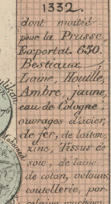 1332.
dont moitié
pour la Prusse.
Exportat. 650.
Bestiaux,
Laine, Houille,
Ambre jaune,
eau de Cologne
ouvrages d'acier,
de fer, de laiton,
Tissus de
soie, de laine
de coton, velours,
coutellerie, par